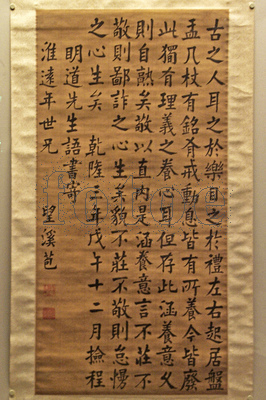 古之人耳之於樂目之於禮左右起居盤
盂几杖有銘有戒動息皆有所養今皆廢
此獨有理義之養心耳但存此涵養意久
則自熟矣敬以直內是涵養意言不莊不
敬則鄙詐之心生矣貌不莊不敬則怠慢
之心生矣 乾隆三年戊午十二月檢程
明道先生語書寄
淮遠年世兄 望溪苞